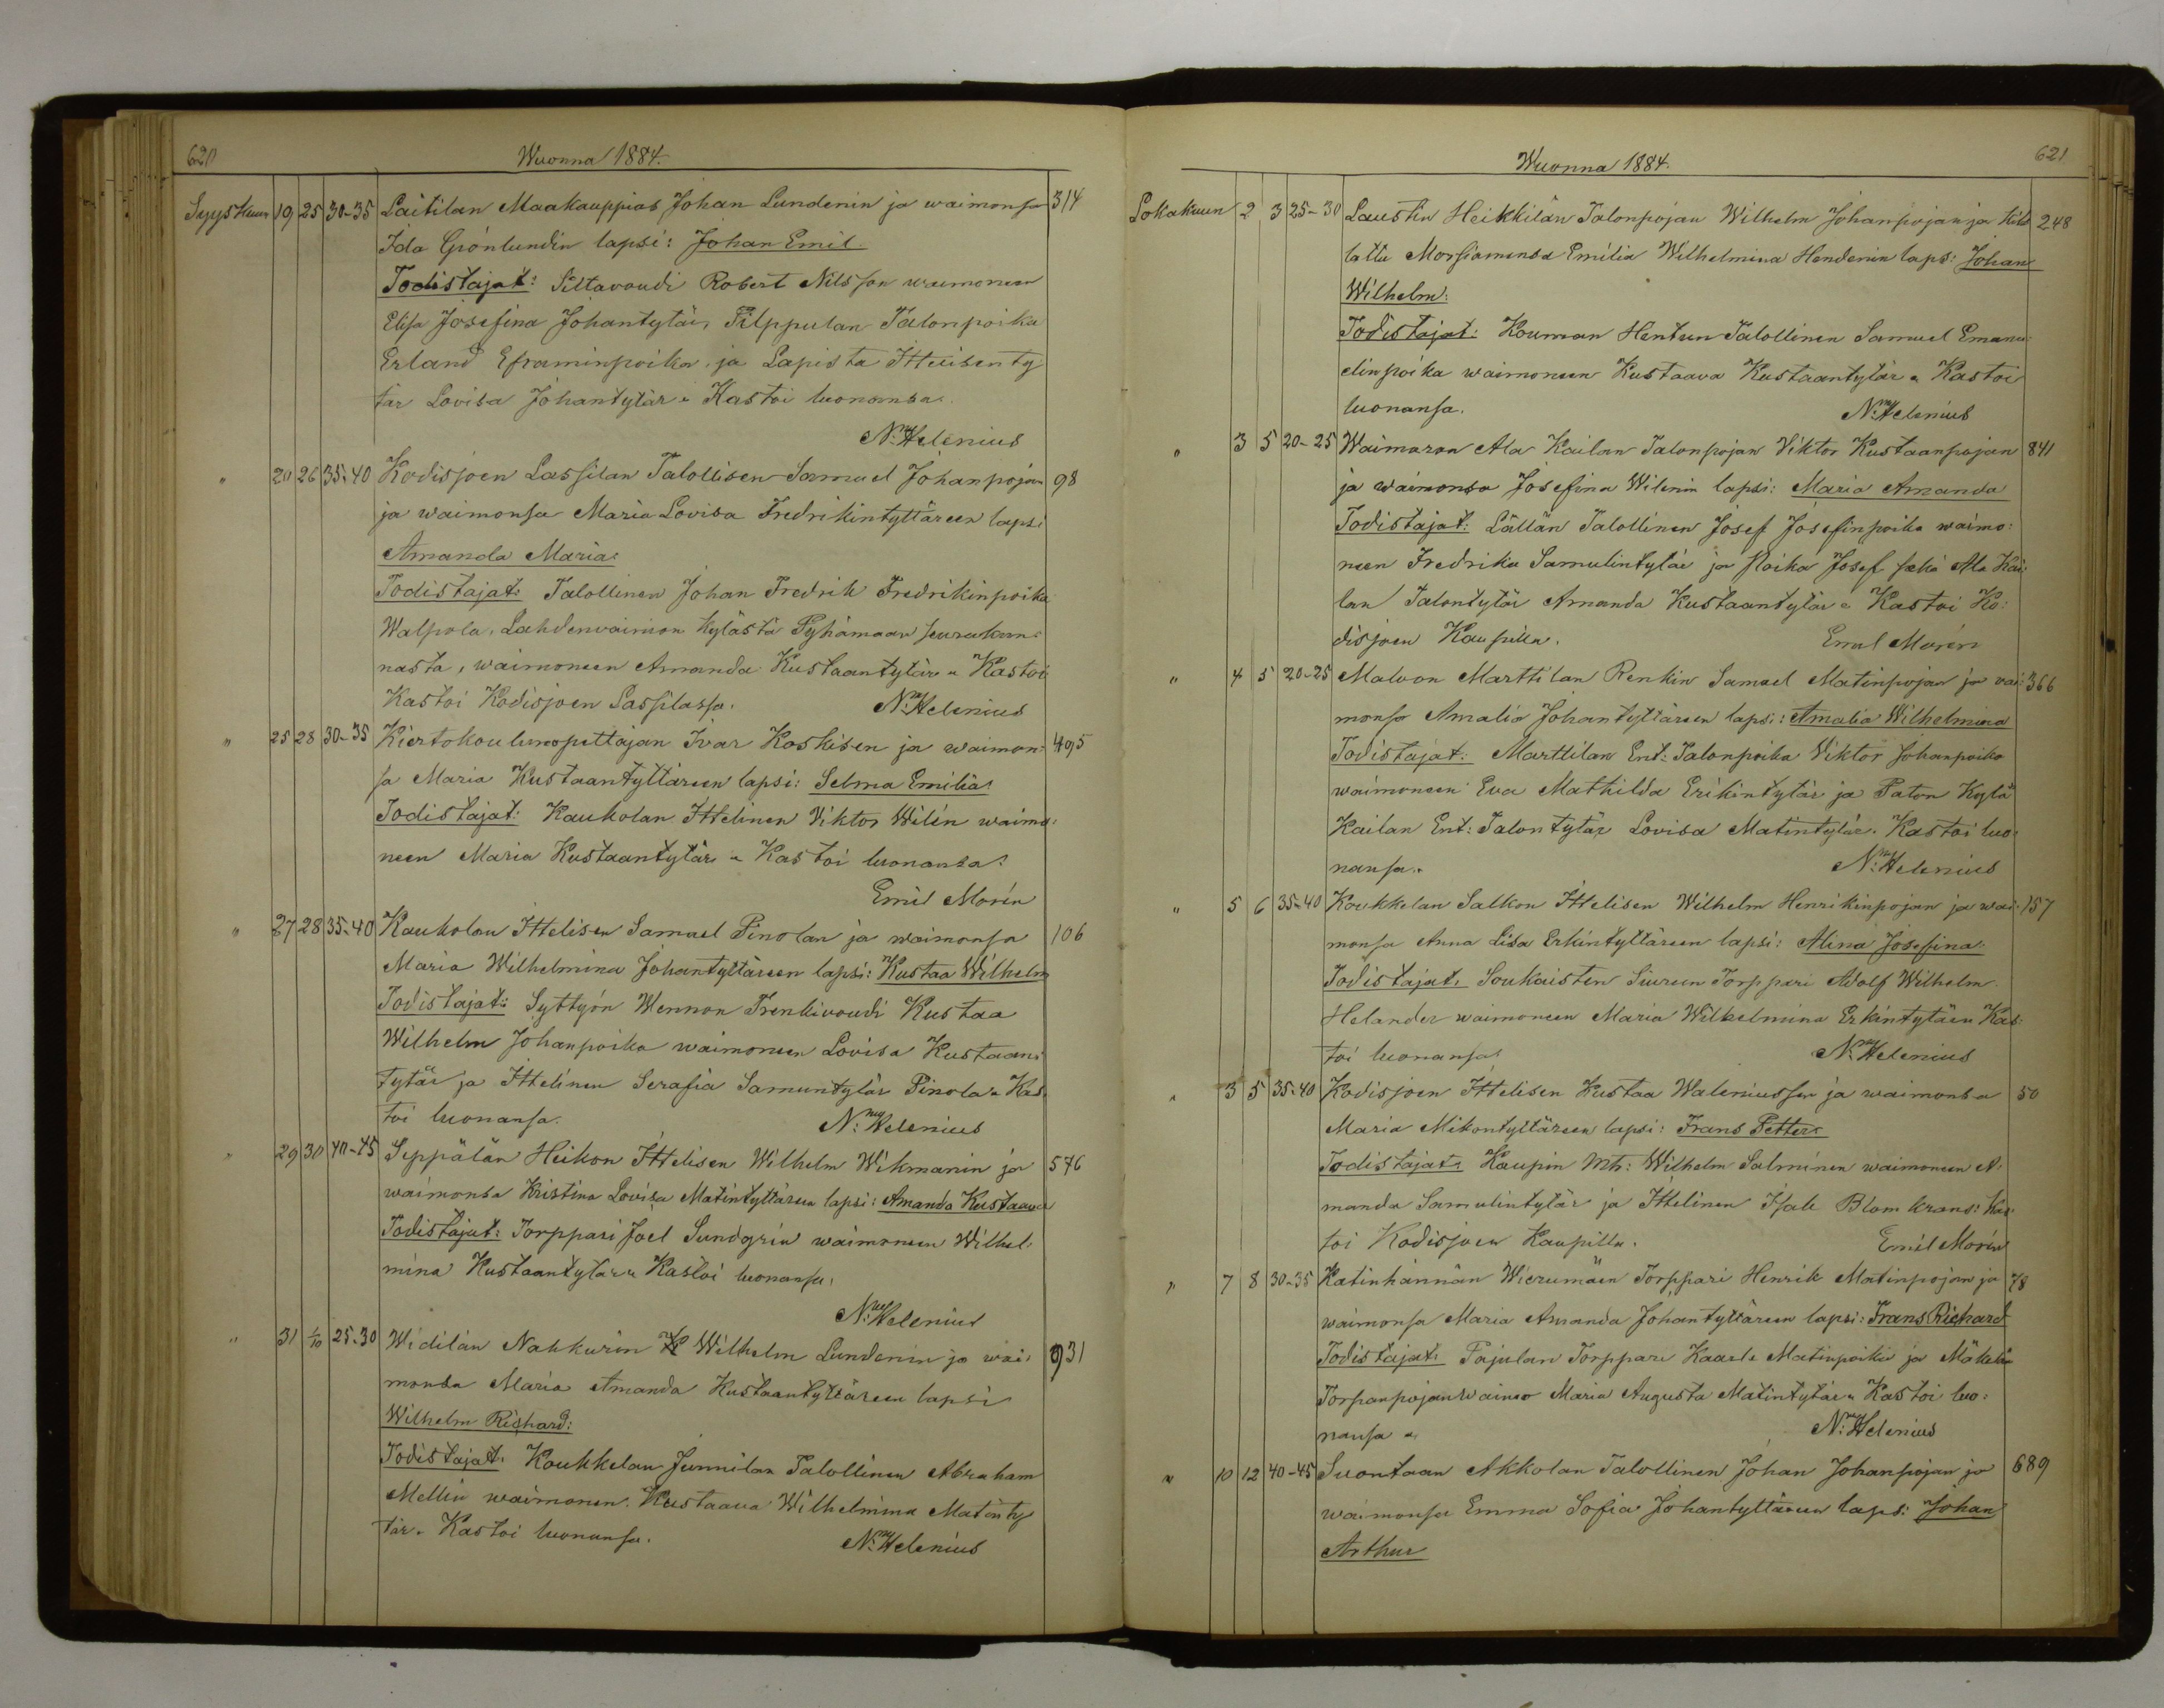 620 Wuonna 1884.
Syyskuun 19 25 30-35 Laitilan Maakauppias Johan Lundenin ja waimonsa 314
Ida Grönlundin lapsi: Johan Emil.
Todistajat: Siltavoudi Robert Nilsson waimoneen
Elisa Josefina Johantytär, Pilppulan Talonpoika
Erland Eframinpoika, ja Lapista Itteisenty
tär Lovisa Johantytär " Kastoi luonansa.
N:ny Helenius
" 20 26 35-40 Kodisjoen Lassilan Talollisen Samuel Johanpojan 98
ja waimonsa Maria Lovisa Fredrikintyttäreen lapsi
Amanda Maria:
Todistajat: Talollinen Johan Fredrik Fredrikinpoika
Walpola, Lahdenvainion kylästä Pyhämaan seurakun=
nasta, waimoneen Amanda Kustaantytär " Kastoi
Kastoi Kodisjoen Lassilassa. N:ny Helenius
" 25 28 30-35 Kiertokoulunopettajan Ivar Koskisen ja waimon= 495
sa Maria Kustaantyttäreen lapsi: Selma Emilia:
Todistajat: Kaukolan Ittelinen Viktor Wilén waimo:
neen Maria Kustaantytär " Kastoi luonansa:
Emil Morén
" 27 28 35-40 Kaukolan Ittelisen Samuel Pinolan ja waimonsa 106
Maria Wilhelmina Johantyttäreen lapsi: Kustaa Wilhelm
Todistajat: Syttyön Wennon Trenkivoudi Kustaa
Wilhelm Johanpoika waimoneen Lovisa Kustaan:
tytär ja Ittelinen Serafia Samuntytär Pinola " Kas:
toi luonansa. N:ny Helenius
" 29 30 40-45 Seppälän Heikon Ittelisen Wilhelm Wikmanin ja 576
waimonsa Kristina Lovisa Matintyttäreen lapsi: Amanda Kustaava
Todistajat: Torppari Joel Sundgrén waimoneen Wilhel:
mina Kustaantytär " Kastoi luonansa.
N:ny Helenius
" 31 1/10 25-30 Widilän Nahkurin Wilhelm Lundenin ja wai: 931
monsa Maria Amanda Kustaantyttäreen lapsi
Wilhelm Richard:
Todistajat: Koukkelan Junnilan Talollinen Abraham
Mellin waimoneen. Kustaava Wilhelmina Matinty
tär. Kastoi luonansa. N:ny Helenius
Wuonna 1884. 621
Lokakuun 2 3 25-30 Laustin Heikkilän Talonpojan Wilhelm Johanpojan ja kih 248
lattu Morsiamensa Emilia Wilhelmina Hendenin laps: Johan
Wilhelm:
Todistajat: Kouman Hentun Talollinen Samuel Emanu:
elinpoika waimoneen Kustaava Kustaantytär " Kastoi
luonansa. N:ny Helenius
" 3 5 20-25 Waimaron Ala Kailan Talonpojan Viktor Kustaanpojan 841
ja waimonsa Josefina Wilenin lapsi: Maria Amanda
Todistajat: Lällän Talollinen Josef Josefinpoika waimo:
neen Fredrika Samulintytär ja Poika Josef sekä Ala Kai:
lan Talontytär Amanda Kustaantytär " Kastoi Ko:
disjoen Kaupilla. Emil Morén
" 4 5 20-25 Malvon Marttilan Renkin Samuel Matinpojan ja vai: 366
monsa Amalia Johantyttäreen lapsi: Amalia Wilhelmina
Todistajat: Marttilan Ent: Talonpoika Viktor Johanpoika
waimoneen Eva Mathilda Erikintytär ja Paton Kylä
Kailan Ent: Talontytär Lovisa Matintytär. Kastoi luo:
nansa. N:ny Helenius
" 5 6 35-40 Koukkelan Salkon Ittelisen Wilhelm Henrikinpojan ja wai: 157
monsa Anna Lisa Erkintyttäreen lapsi: Alina Josefina:
Todistajat: Soukaisten Siureen Torppari Adolf Wilhelm
Helander waimoneen Maria Wilhelmina Erkintytär " Kas:
toi luonansa N:ny Helenius
" 3 5 35-40 Kodisjoen Ittelisen Kustaa Waleniussen ja waimonsa 50
Maria Mikontyttäreen lapsi: Frans Petter:
Todistajat: Kaupin Mts: Wilhelm Salminen waimoneen A:
manda Samulintytär ja Ittelinen Isak Blomkrans: Kas:
toi Kodisjoen Kaupilla. Emil Morén
" 7 8 30-35 Katinhännän Wierumäen Torppari Henrik Matinpojan ja 78
waimonsa Maria Amanda Johantyttäreen lapsi: Frans Richard
Todistajat: Pajulan Torppari Kaarle Matinpoika ja Mäkelän
Torpanpojanwaimo Maria Augusta Matintytär " Kastoi luo:
nansa " N:ny Helenius
" 10 12 40-45 Suontaan Akkolan Talollinen Johan Johanpojan ja 689
waimonsa Emma Sofia Johantyttäreen laps: Johan
Arthur